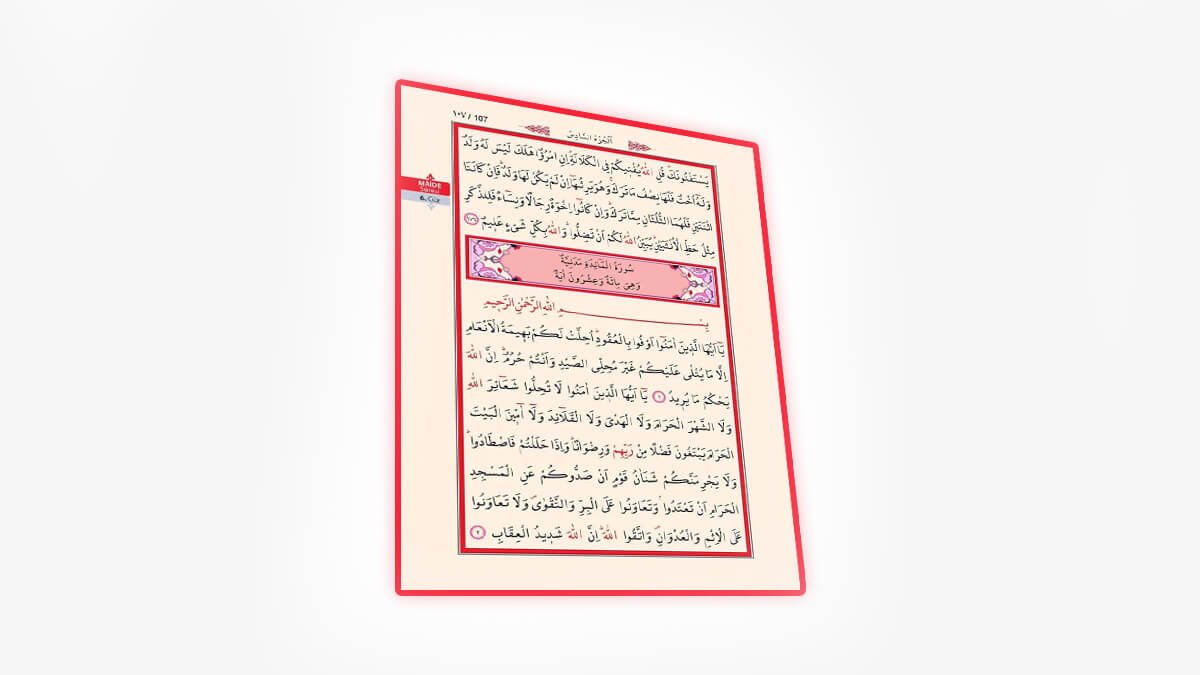 ١٠٧ / 107
اَلْجُزْءُ السَّادِسُ
MAİDE
Suresi
6. Cüz
يَسْتَفْتُونَكَ قُلِ اللّٰهُ يُفْت۪يكُمْ فِي الْكَلَالَةِ اِنِ امْرُؤٌا هَلَكَ لَيْسَ لَهُ وَلَدٌ
وَلَهُٓ اُخْتٌ فَلَهَا نِصْفُ مَا تَرَكَ وَهُوَ يَرِثُهَٓا اِنْ لَمْ يَكُنْ لَهَا وَلَدٌ فَاِنْ كَانَتَا
اثْنَتَيْنِ فَلَهُمَا الثُّلُثَانِ مِمَّا تَرَكَ وَاِنْ كَانُٓوا اِخْوَةً رِجَالًا وَنِسَٓاءً فَلِلذَّكَرِ
مِثْلُ حَظِّ الْاُنْثَيَيْنِ يُبَيِّنُ اللّٰهُ لَكُمْ اَنْ تَضِلُّوا وَاللّٰهُ بِكُلِّ شَيْءٍ عَل۪يمٌ ١٧٦
سُورَةُ الْمَٓائِدَةِ مَدَنِيَّةٌ
وَهِيَ مِائَةٌ وَعِشْرُونَ اٰيَةً
بِسْمِ اللّٰهِ الرَّحْمٰنِ الرَّح۪يمِ
يَٓا اَيُّهَا الَّذ۪ينَ اٰمَنُٓوا اَوْفُوا بِالْعُقُودِ اُحِلَّتْ لَكُمْ بَه۪يمَةُ الْاَنْعَامِ
اِلَّا مَا يُتْلٰى عَلَيْكُمْ غَيْرَ مُحِلِّي الصَّيْدِ وَاَنْتُمْ حُرُمٌ اِنَّ اللّٰهَ
يَحْكُمُ مَا يُر۪يدُ ١ يَٓا اَيُّهَا الَّذ۪ينَ اٰمَنُوا لَا تُحِلُّوا شَعَٓائِرَ اللّٰهِ
وَلَا الشَّهْرَ الْحَرَامَ وَلَا الْهَدْيَ وَلَا الْقَلَٓائِدَ وَلَٓا اٰمّ۪ينَ الْبَيْتَ
الْحَرَامَ يَبْتَغُونَ فَضْلًا مِنْ رَبِّهِمْ وَرِضْوَانًا وَاِذَا حَلَلْتُمْ فَاصْطَادُوا
وَلَا يَجْرِمَنَّكُمْ شَنَاٰنُ قَوْمٍ اَنْ صَدُّوكُمْ عَنِ الْمَسْجِدِ
الْحَرَامِ اَنْ تَعْتَدُوا وَتَعَاوَنُوا عَلَى الْبِرِّ وَالتَّقْوٰى وَلَا تَعَاوَنُوا
عَلَى الْاِثْمِ وَالْعُدْوَانِ وَاتَّقُوا اللّٰهَ اِنَّ اللّٰهَ شَد۪يدُ الْعِقَابِ ٢